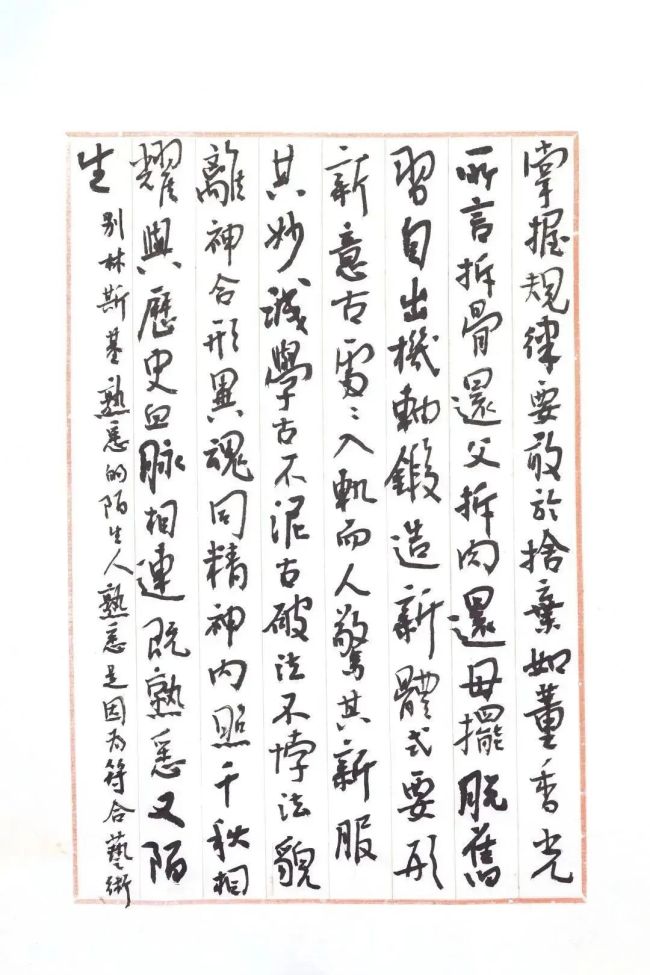 掌握規律要敢於捨棄如董香光
所言拆骨還父拆肉還母擺脫舊
習自出機軸鍛造新體式要形
新意古雷〻入軌而人驚其新服
其妙誠學古不泥古破法不悖法貌
離神合形異魂同精神内照千秋相
耀與歷史血脉相連既熟悉又陌
生
别林斯基熟悉的陌生人熟悉是因为符合藝術